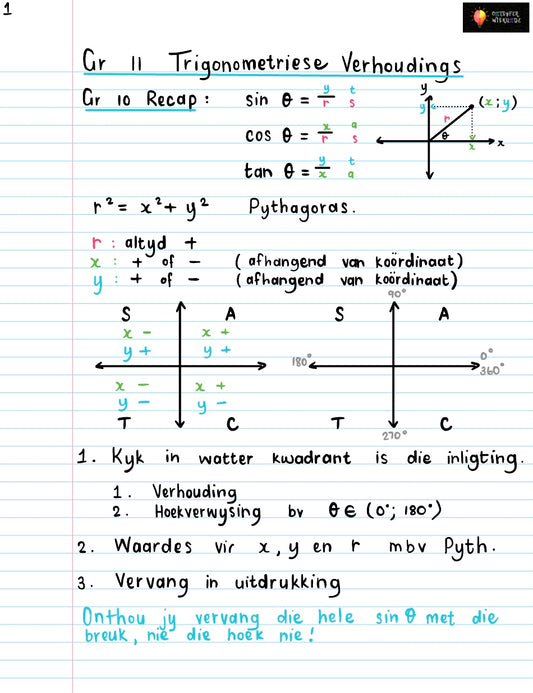 1
ONTSYFER WISKUNDE
Gr 11 Trigonometriese Verhoudings
Gr 10 Recap:
sin θ = y/r t/s
cos θ = x/r a/s
tan θ = y/x t/a
y
y
r
(x;y)
θ
x
x
r² = x² + y² Pythagoras.
r : altyd +
x : + of - (afhangend van koördinaat)
y : + of - (afhangend van koördinaat)
S A
x - x +
y + y +
x - x +
y - y -
T C
90°
S A
180° 0°
360°
T C
270°
1. Kyk in watter kwadrant is die inligting.
1. Verhouding
2. Hoekverwysing bv θ ∈ (0°; 180°)
2. Waardes vir x, y en r mbv Pyth.
3. Vervang in uitdrukking
Onthou jy vervang die hele sin θ met die
breuk, nie die hoek nie!